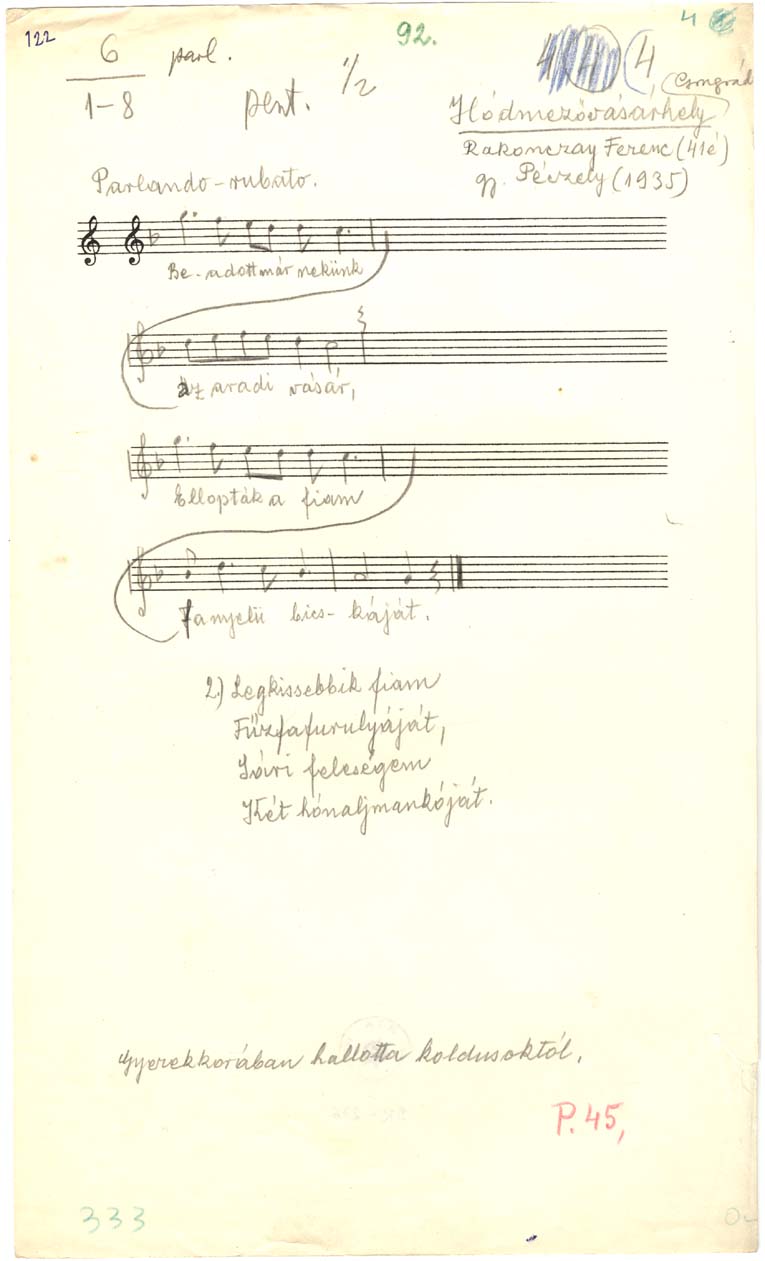 122
92.
4
6 parl.
1-8
pent. 1/2
4 4 (4, Csongrád
Hódmezővásárhely
Rakonczay Ferenc (41é)
gy. Péczely (1935)
Parlando-rubato.
Be-adott már nekünk
az aradi vásár,
Ellopták a fiam
Fanyelü bics-káját.
2.) Legkissebbik fiam
Fűzfafurulyáját,
Sári feleségem
Két hónaljmankóját.
Gyerekkorában hallotta koldusoktól.
P. 45,
333